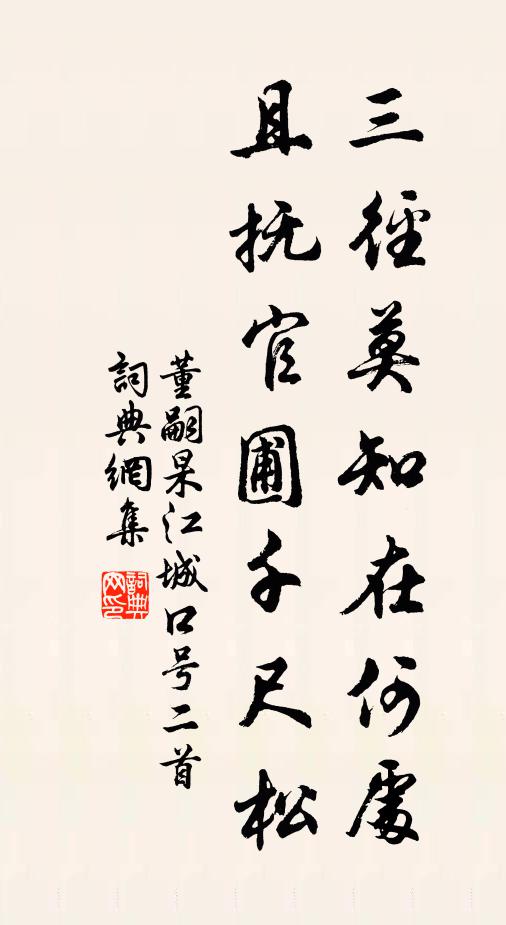 三徑莫知在何處
且抚官圃千尺松
董嗣杲江城口号二首
詞典網集
詞典网印